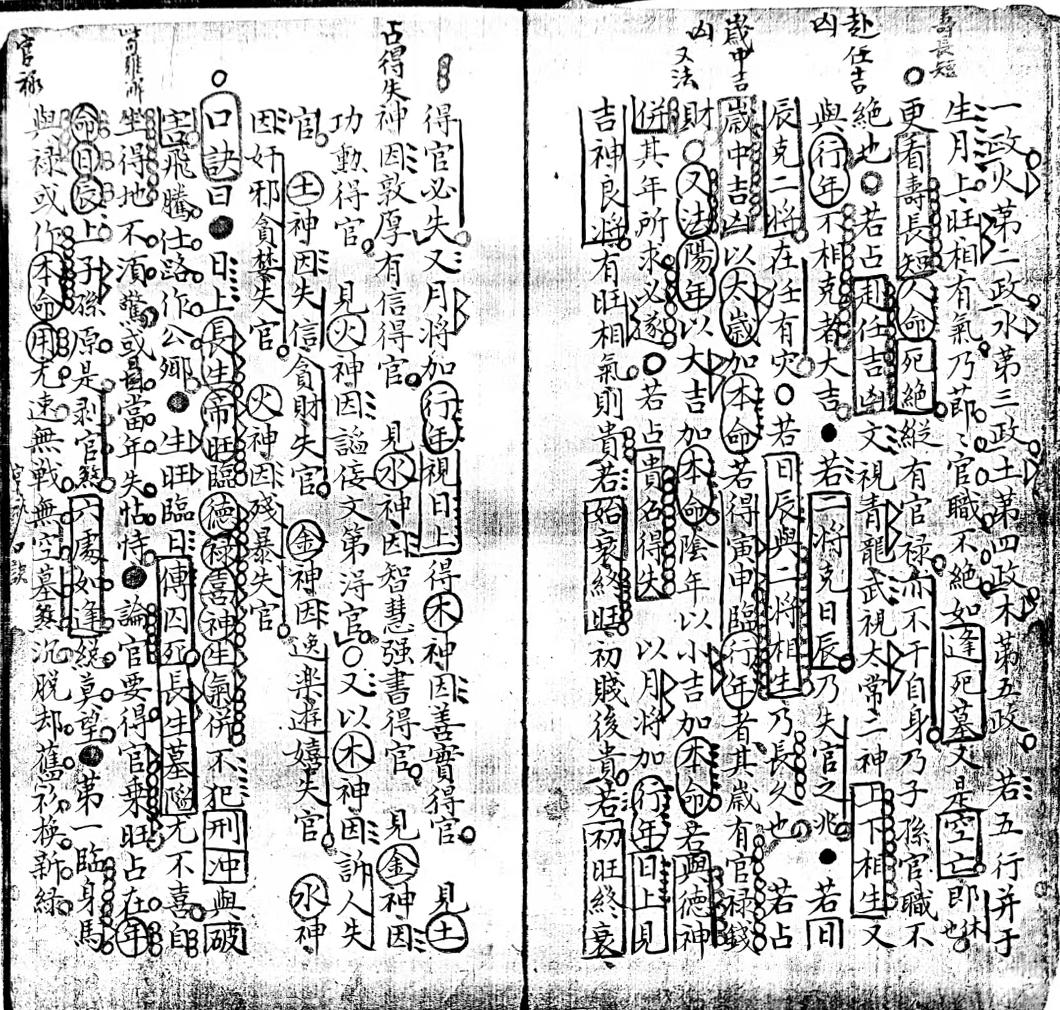 一政火第二政水第三政土第四政木第五政　若五行并于
生月上旺相有氣乃莭〻官職不絕如逢死墓又是空亡即休也
壽長短
更看壽長短人命死絕縱有官禄亦不干自身乃子孫官職不
絕也若占赴任吉凶文視青龍武視太常二神上下相生又
赴任吉凶
與行年不相克者大吉　若二將克日辰乃失官之兆　若日
辰克二將在任有灾若日辰與二將相生乃長久也　若占
歲中吉凶
歲中吉凶以太歲加本命若得寅申臨行年者其歲有官禄錢
又法
財又法陽年以大吉加本命陰年以小吉加本命若與德神
併其年所求必遂若占貴名得失　以月將加行年日上見
吉神良將有旺相氣則貴若始衰終旺初賤後貴若初旺終衰
得官必失又月將加行年視日上得木神因善實得官　見土
占得失
神因敦厚有信得官　見水神因智慧强書得官　見金神因
功勲得官　見火神因謟佞文第淂官又以木神因訴人失
官　土神因失信貪財失官　金神因逸楽遊嬉失官　水神
因奸邪貪婪失官　火神因殘暴失官
口訣曰　日上長生帝旺臨德禄喜神生氣併不犯刑冲與破
害飛騰仕路作公卿　生旺臨日傳囚死長生墓陷尤不喜自
坐得地不湏驚或當年失怙恃　論官要得官乗旺占在年
命日辰上子孫原是剥官煞六處如逢絕莫望　第一臨身馬
官禄
與禄或作本命用尤速無戦無空墓煞沉脱却舊衫换新緑
口訣